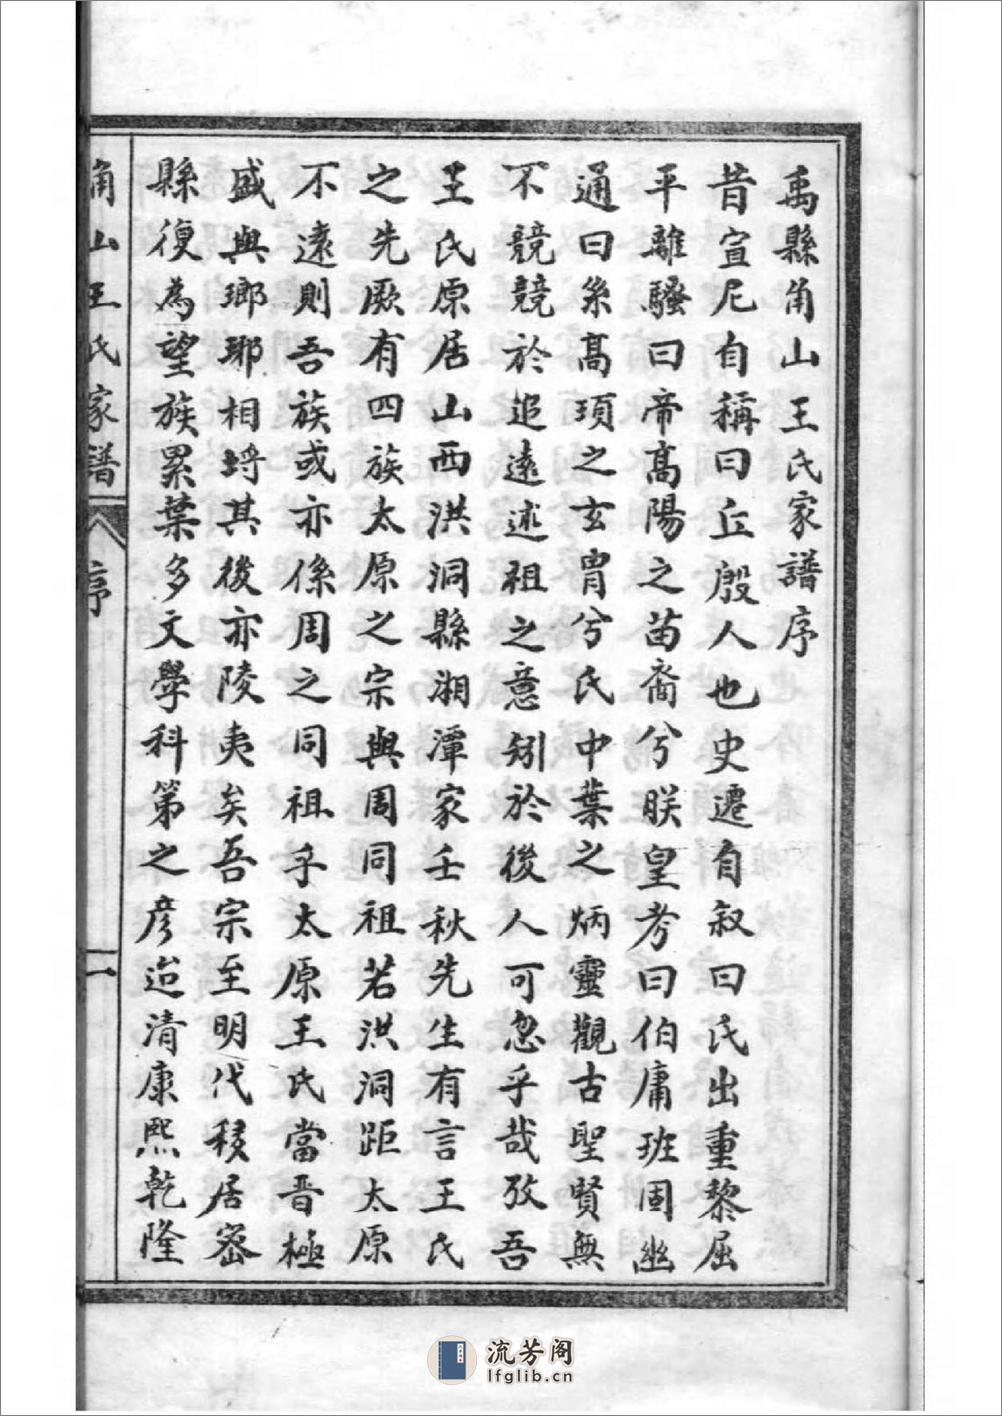 禹縣角山王氏家譜序
昔宣尼自稱曰丘殷人也史遷自叙曰氏出重黎屈
平離騷曰帝高陽之苗裔兮朕皇考曰伯庸班固幽
通曰系高頊之玄胄兮氏中葉之炳靈觀古聖賢無
不競競於追遠述祖之意矧於後人可忽乎哉攷吾
王氏原居山西洪洞縣湘潭家壬秋先生有言王氏
之先厥有四族太原之宗與周同祖若洪洞距太原
不遠則吾族或亦係周之同祖乎太原王氏當晋極
盛與瑯琊相埒其後亦陵夷矣吾宗至明代移居密
縣復為望族累葉多文學科第之彦迨清康熙乾隆
角山王氏家譜 序 二
流芳阁
lfglib.cn